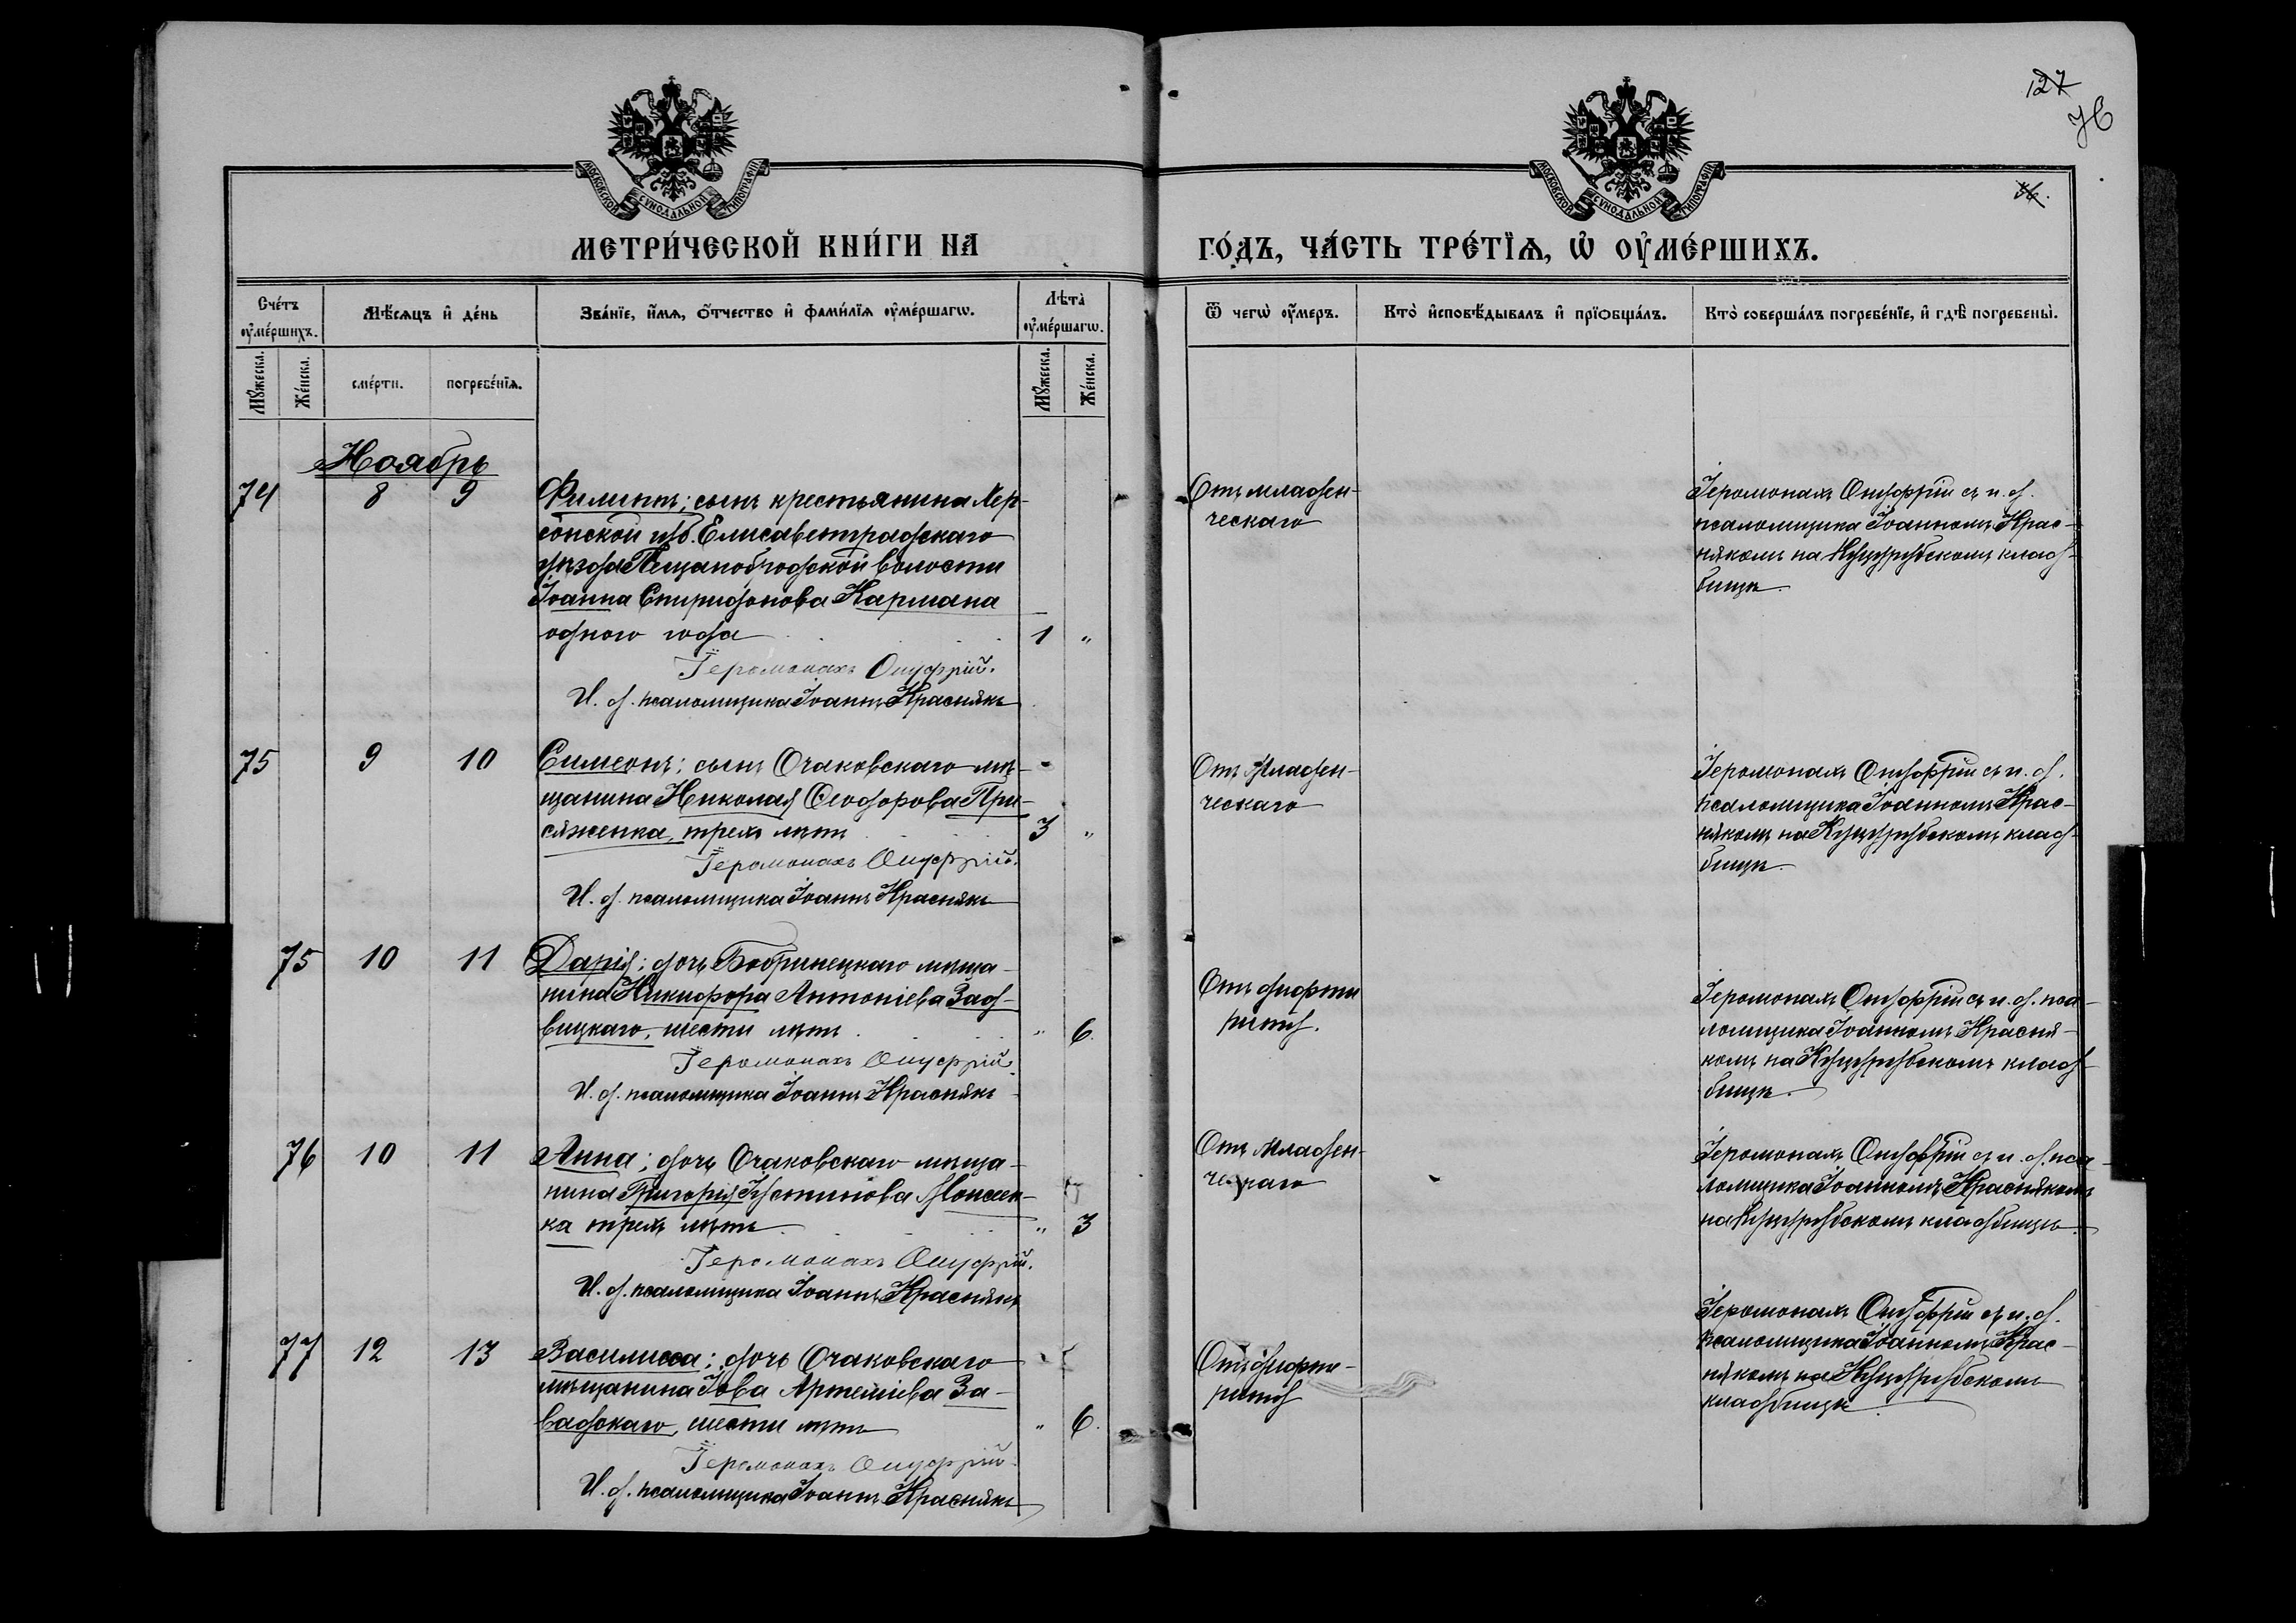 127
76
54.
МОСКОВСКОЙ СУНОДАЛЬНОЙ ТИПОГРАФІИ
МОСКОВСКОЙ СУНОДАЛЬНОЙ ТИПОГРАФІИ
МЕТРИ́ЧЕСКОЙ КНИ́ГИ НА
ГО́ДЪ, ЧА́СТЬ ТРЕ́ТІѦ, Ѡ҆ ОУ҆МЕ́РШИХЪ.
Сче́тъ оу҆ме́ршихъ.
Мѣ́сѧцъ и҆ де́нь
Зва́нїе, и҆́мѧ, ѻ҆́тчество и҆ фами́лїѧ оу҆ме́ршагѡ.
Лѣта̀ оу҆ме́ршагѡ.
Ѿ чегѡ̀ оу҆́меръ.
Кто̀ и҆сповѣ́дывалъ и҆ прїѡбща́лъ.
Кто̀ соверша́лъ погребе́нїе, и҆ гдѣ̀ погребены̀.
Му́жеска.
Же́нска.
сме́рти.
погребе́нїѧ.
Му́жеска.
Же́нска.
Ноябрь
74 8 9
Филиппъ; сынъ крестьянина Хер-
сонской губ. Елисаветградскаго
уѣзда Песчанобродской волости
Іоанна Спиридонова Кармана
одного года 1 "
Іеромонахъ Онуфрій.
И. д. псаломщика Іоаннъ Краснякъ
Отъ младен-
ческаго
Іеромонахъ Онуфрій съ и. д.
псаломщика Іоанномъ Крас-
някомъ на Куцурубскомъ клад-
бищѣ.
75 9 10
Симеонъ; сынъ Очаковскаго мѣ-
щанина Николая Ѳеодорова При-
сяженка, трехъ лѣтъ 3 "
Іеромонахъ Онуфрій.
И. д. псаломщика Іоаннъ Краснякъ
Отъ младен-
ческаго
Іеромонахъ Онуфрій съ и. д.
псаломщика Іоанномъ Крас-
някомъ на Куцурубскомъ клад-
бищѣ.
75 10 11
Дарія; дочь Бобринецкаго мѣща-
нина Никифора Антоніева Зад-
вицкаго, шести лѣтъ " 6.
Іеромонахъ Онуфрій.
И. д. псаломщика Іоаннъ Краснякъ
Отъ дифте
рита.
Іеромонахъ Онуфрій съ и. д. пса-
ломщика Іоанномъ Красня-
комъ на Куцурубскомъ клад-
бищѣ.
76 10 11
Анна; дочь Очаковскаго мѣща-
нина Григорія Іустинова
ка трехъ лѣтъ " 3
Іеромонахъ Онуфрій.
И. д. псаломщика Іоаннъ Краснякъ
Отъ младен-
ческаго
Іеромонахъ Онуфрій съ и. д. пса-
ломщика Іоанномъ Краснякомъ
на Куцурубскомъ кладбищѣ.
77 12 13
Василисса; дочь Очаковскаго
мѣщанина Іова Артеміева За-
вадскаго, шести лѣтъ " 6.
Іеромонахъ Онуфрій.
И. д. псаломщика Іоаннъ Краснякъ
Отъ дифте-
рита
Іеромонахъ Онуфрій съ и. д.
псаломщика Іоанномъ Крас-
някомъ на Куцурубскомъ
кладбищѣ.